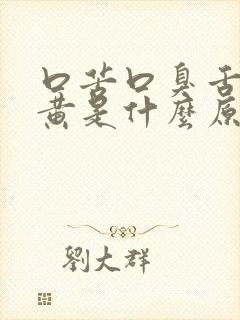 口苦口臭舌
黃是什麼原
劉大群